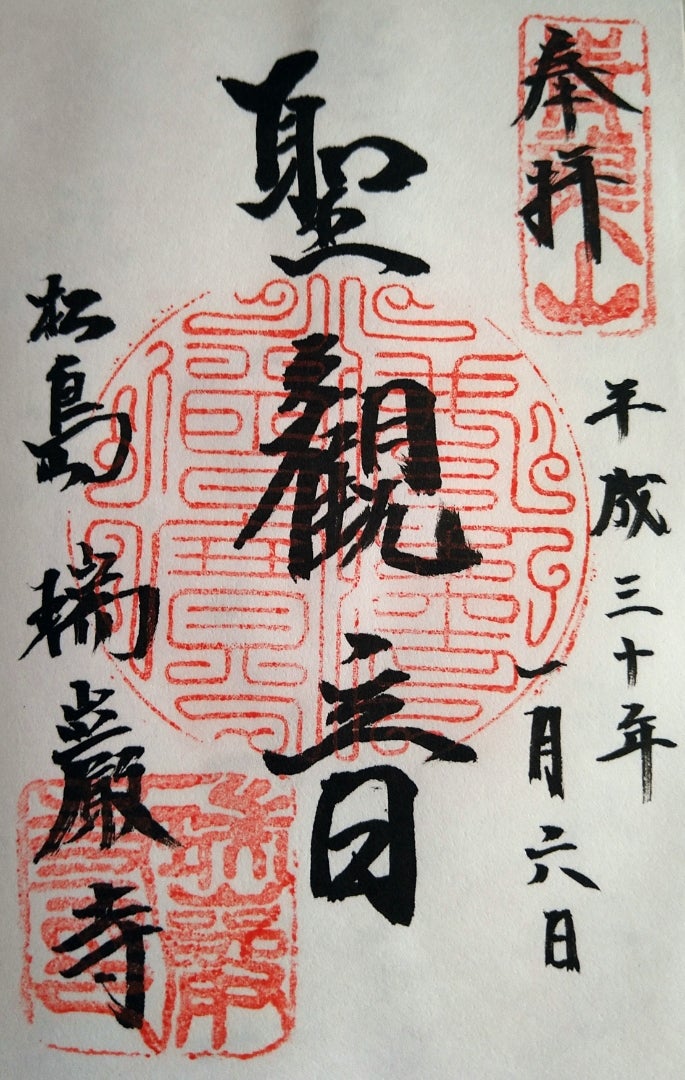 奉拝
平成三十年
一月六日
聖觀音
松島 瑞巖寺